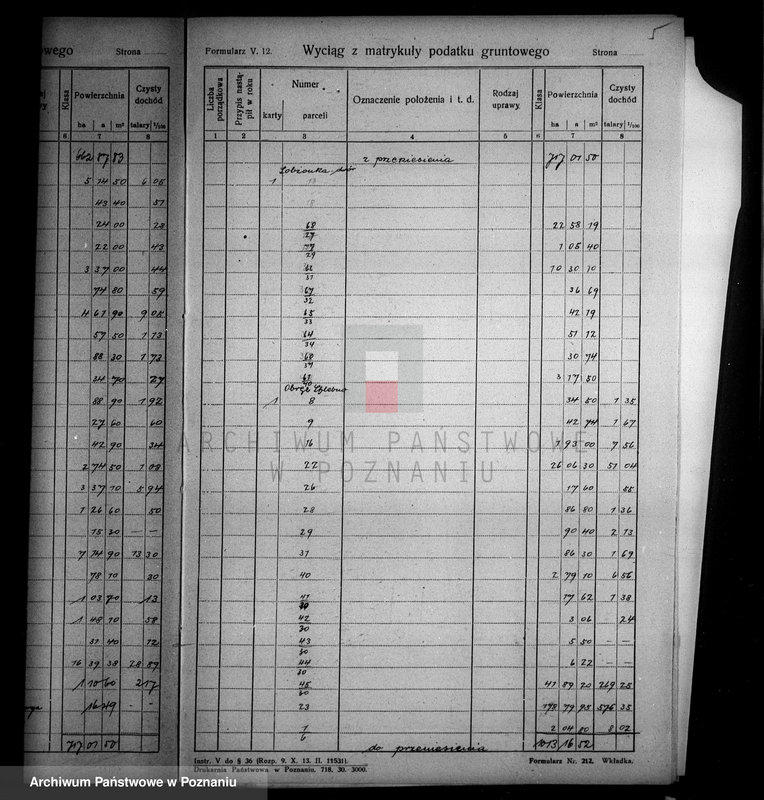 owego Strona
Klasa Powierzchnia Czysty dochód
ha a m² talary 1/100
6 7 8
662 87 83
5 74 50 6 05
43 40 51
24 00 28
22 00 43
3 37 00 44
74 80 59
4 61 90 9 08
57 50 1 73
88 30 1 73
34 70 27
88 90 1 92
27 60 60
42 90 34
2 74 50 1 08
3 37 10 5 94
1 26 60 50
15 30 — —
7 74 90 13 30
78 10 30
1 03 70 13
1 48 10 58
31 40 12
16 39 38 28 89
1 10 60 2 17
16 49 —
717 01 50
Formularz V. 12. Wyciąg z matrykuły podatku gruntowego Strona
Liczba porządkowa Przypis nastąpił w roku Numer Oznaczenie położenia i t. d. Rodzaj uprawy. Klasa Powierzchnia Czysty dochód
karty parceli ha a m² talary 1/100
1 2 3 4 5 6 7 8
z przeniesienia 717 01 50
1 13
18
68/27 22 58 19
77/29 1 05 40
62/31 10 30 10
67/32 36 69
65/33 42 19
64/34 51 12
60/37 30 74
3 17 50
Obręb
1 8 34 50 1 35
9 42 74 1 67
16 1 93 00 7 56
22 26 06 30 51 04
26 17 60 55
28 86 80 1 36
29 90 40 2 13
31 86 30 1 69
40 2 79 10 6 56
41/30 17 62 1 38
42/30 3 06 24
43/30 5 50 — —
44/30 6 22 — —
45/60 41 89 20 269 25
23 178 79 95 576 35
1/6 2 04 80 8 02
do przeniesienia 1013 16 52
Instr. V do § 36 (Rozp. 9. X. 13. II. 11531). Formularz Nr. 212. Wkładka.
Drukarnia Państwowa w Poznaniu. 718. 30. 3000.
ARCHIWUM PAŃSTWOWE
W POZNANIU
Archiwum Państwowe w Poznaniu